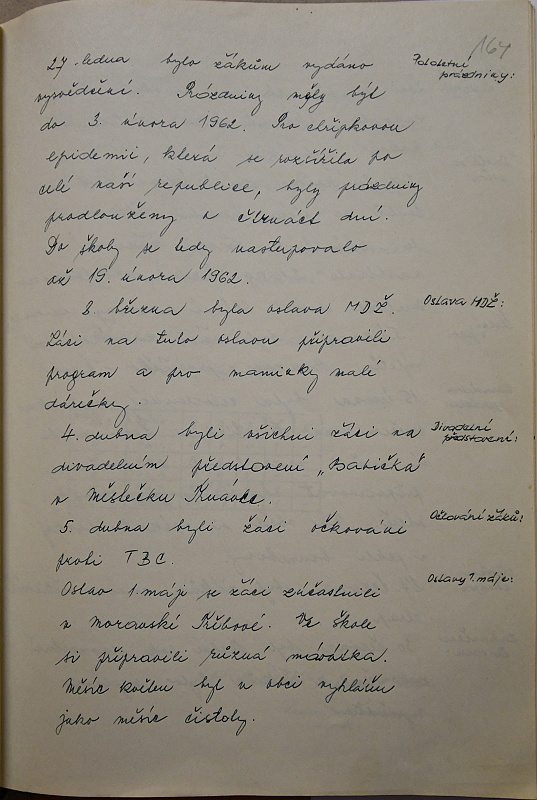 164
27. ledna bylo žákům vydáno
Pololetní
prázdniny:
vysvědčení. Prázdniny měly být
do 3. února 1962. Pro chřipkovou
epidemii, která se rozšířila po
celé naší republice, byly prázdniny
prodlouženy o čtrnáct dní.
Do školy se tedy nastupovalo
až 19. února 1962.
8. března byla oslava MDŽ.
Oslava MDŽ:
Žáci na tuto oslavu připravili
program a pro maminky malé
dárečky.
4. dubna byli všichni žáci na
Divadelní
představení:
divadelním představení „Babička"
v Městečku Trnávce.
5. dubna byli žáci očkováni
Očkování žáků:
proti TBC.
Oslav 1. máje se žáci zúčastnili
Oslavy 1. máje:
v Moravské Třebové. Ve škole
si připravili různá mávátka.
Měsíc květen byl v obci vyhlášen
jako měsíc čistoty.